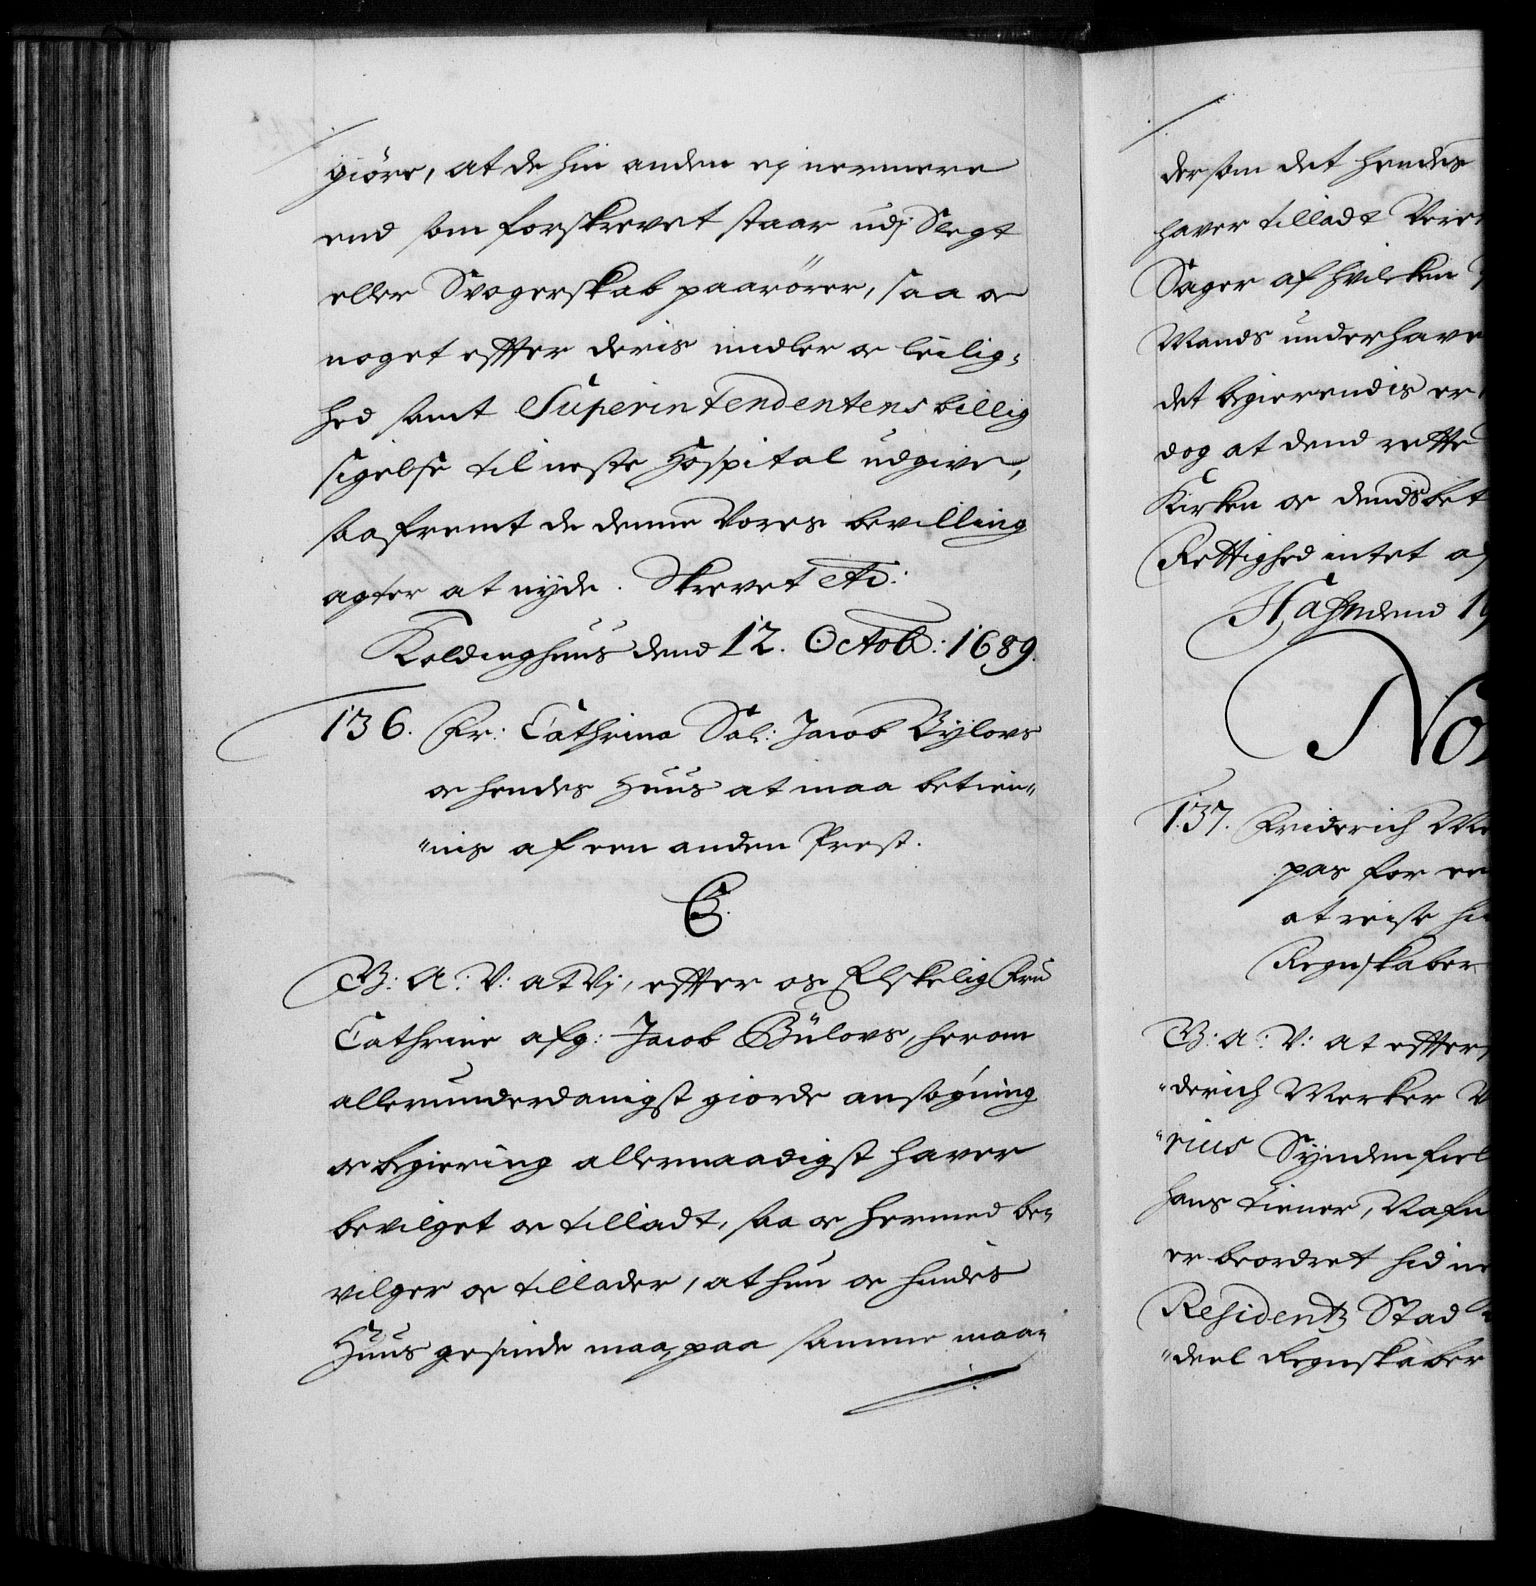 giöre, at de hin anden ej nermere
end som forskrevet staar udj Slegt
eller Svogerskab paarörer, saa oc
noget effter deris midler oc leilig-
hed samt Superintendentens billig
sigelse til neste Hospital udgive,
saafremt de denne Vores bevilling
agter at nyde. Skrevet etc:
Koldinghuus dend 12. Octob: 1689.
136. Fr: Cathrina Sal: Jacob Bylovs
oc hendes Huus at maa betien-
"nis af een anden Prest.
C5.
B: A: V: at Vj, effter os Elskelig Fru
Cathrine afg: Jacob Bülovs, herom
allerunderdanigst giorde ansøgning
oc begiering allernaadigst haver
bevilget oc tilladt, saa oc hermed be-
vilger oc tillader, at hun oc hindes
Huus gesinde maa, paa samme maa-
dersom det hendes
haver tilladt
Sager af hvilken
Mands underhave
det begierendis er
dog at dend rette
Kirken oc dendsbet
Rettighed intet af
Hafn dend 19
No
137. Friderich Me
pas for en
at reise hid
Regnskaber
B: A: V: at effters
"derich Merker
"rius Synden fiel
hans tiener, Nafn
er beordret hid ne
Residentz Stad
"deel Regnskaber